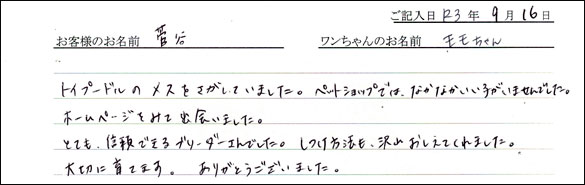 ご記入日 R3 年 9 月 16 日
お客様のお名前 菅谷 ワンちゃんのお名前 モモちゃん
トイプードルのメスをさがしていました。ペットショップでは、なかなかいい子がいませんでした。
ホームページをみて出会いました。
とても、信頼できるブリーダーさんでした。しつけ方法も、沢山おしえてくれました。
大切に育てます。ありがとうございました。